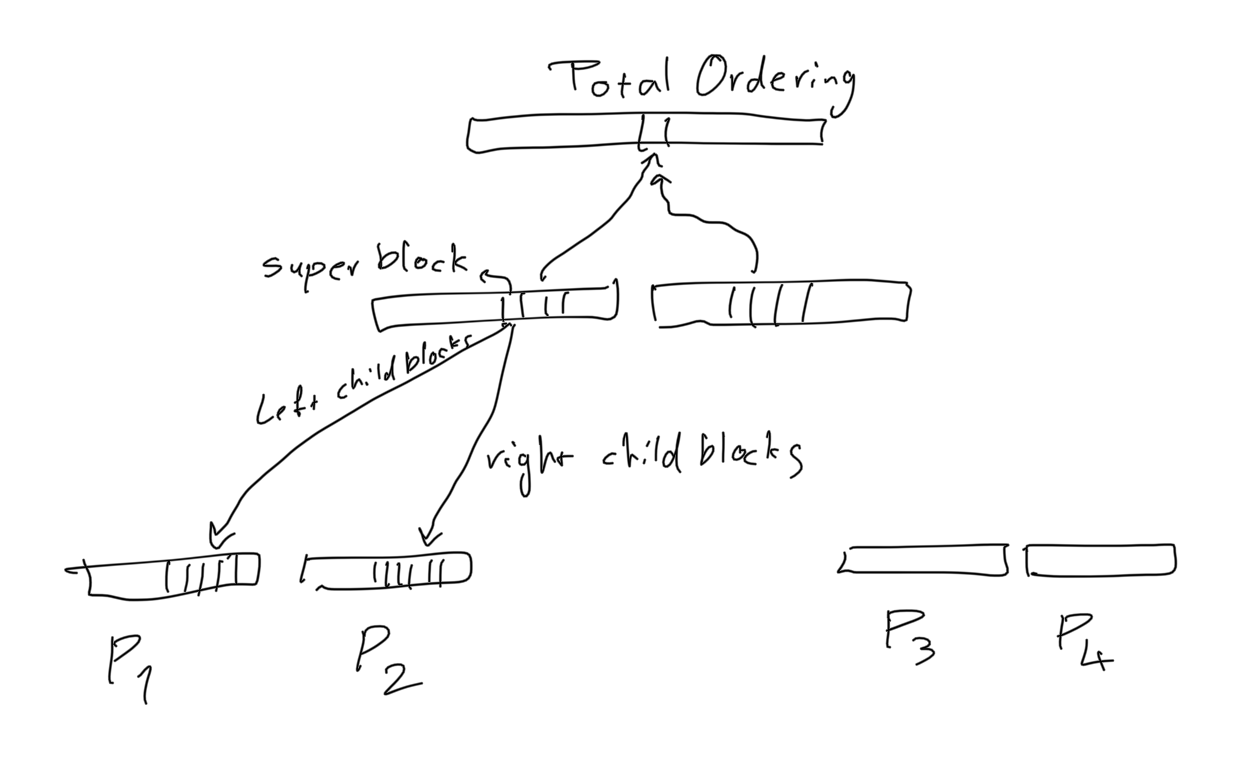 Total Ordering
super block
Left child blocks
right child blocks
P1
P2
P3
P4